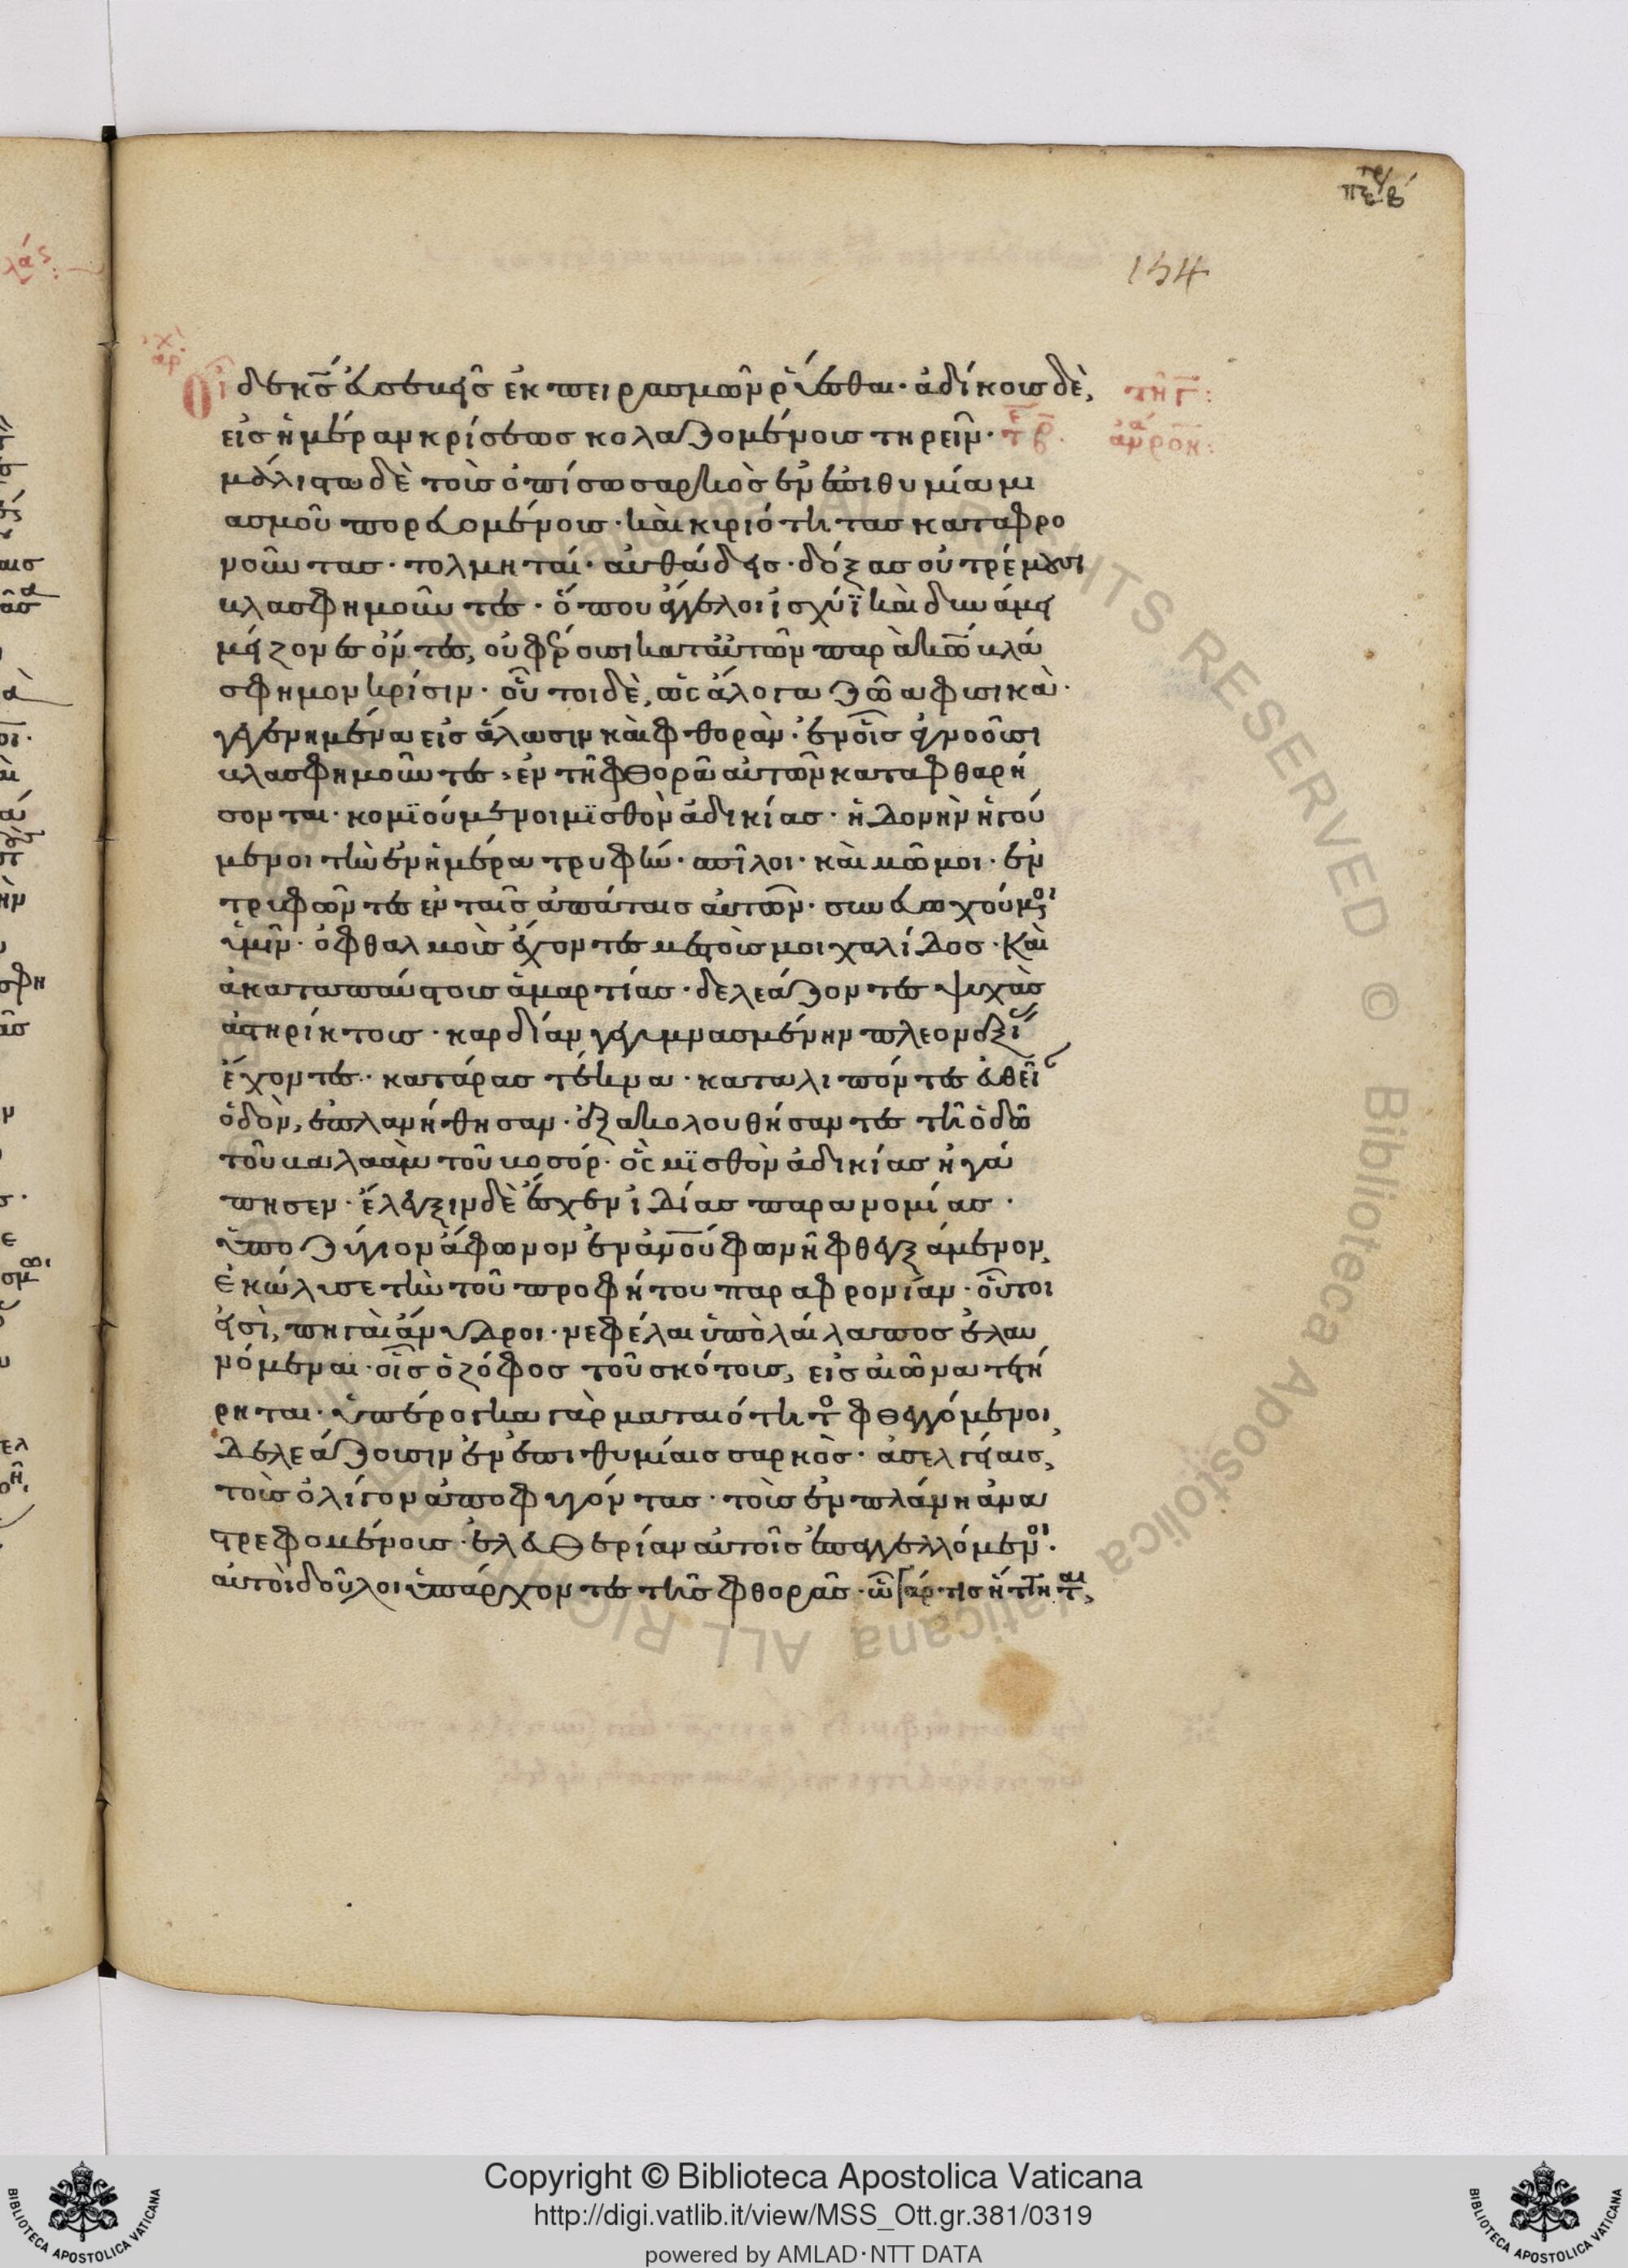 πε β
154
Οἶδε κς εὐσεβεῖς ἐκ πειρασμῶν ῥύεσθαι· ἀδίκοις δὲ,
τη γ:
εἰς ἡμέραν κρίσεως κολαζομένους τηρεῖν· τε
μάλιστα δὲ τοὺς ὀπίσω σαρκὸς ἐν ἐπιθυμία μι
ασμοῦ πορευομένους· καὶ κυριότητας καταφρο
νοῦντας· τολμηταί· αὐθάδεις· δόξας οὐ τρέμουσι
βλασφημοῦντες· ὅπου ἄγγελοι ἰσχύϊ καὶ δυνάμει
μείζονες ὄντες, οὐ φέρουσι κατ αὐτῶν παρὰ κω βλά
σφημον κρίσιν· οὗτοι δὲ, ὡς ἄλογα ζῶα φυσικὰ·
γεγενημένα εἰς ἅλωσιν καὶ φθορὰν· ἐν οἷς ἀγνοοῦσι
βλασφημοῦντες· ἐν τῆ φθορᾶ αὐτῶν καταφθαρή
σονται· κομϊούμενοι μϊσθὸν ἀδικίας· ἡδονὴν ἡγού
μενοι τὴν ἐν ἡμέρα τρυφήν· σπῖλοι· καὶ μῶμοι· ἐν
τρυφῶντες ἐν ταῖς ἀπάταις αὐτῶν· συνευωχούμενοι
ὑμῖν· ὀφθαλμοὺς ἔχοντες μεστοὺς μοιχαλίδος· καὶ
ἀκαταπαύστους ἁμαρτίας· δελεάζοντες ψυχὰς
ἀστηρίκτους· καρδίαν γεγυμνασμένην πλεονεξί
ἔχοντες· κατάρας τέκνα· καταλιπόντες εὐθεῖ
ὁδὸν, ἐπλανήθησαν· ἐξακολουθήσαντες τῆ ὁδῶ
τοῦ βαλαὰμ τοῦ βοσόρ· ὃς μϊσθὸν ἀδικίας ἠγά
πησεν· ἔλεγξιν δὲ ἔσχεν ἰδίας παρανομίας·
ὑποζύγιον ἄφωνον ἐν ἀνου φωνῆ φθεγξάμενον,
ἐκώλυσε τὴν τοῦ προφήτου παραφρονίαν· οὗτοι
εἰσὶ, πηγαὶ ἄνυδροι· νεφέλαι ὑπὸ λαίλαπος ἐλαυ
νόμεναι· οἷς ὁ ζόφος τοῦ σκότους, εἰς αἰῶνα τετή
ρηται· ὑπέρογκα γὰρ ματαιότητος φθεγγόμενοι,
δελεάζουσιν ἐν ἐπιθυμίαις σαρκὸς· ἀσελγείαις,
τοὺς ὀλίγον ἀποφυγόντας· τοὺς ἐν πλάνη ἀνα
στρεφομένους· ἐλευθερίαν αὐτοῖς ἐπαγγελλόμενοι·
αὐτοὶ δοῦλοι ὑπάρχοντες τῆς φθορᾶς· ὧ γάρ τις ἥττηται,
Copyright © Biblioteca Apostolica Vaticana
http://digi.vatlib.it/view/MSS_Ott.gr.381/0319
powered by AMLAD·NTT DATA